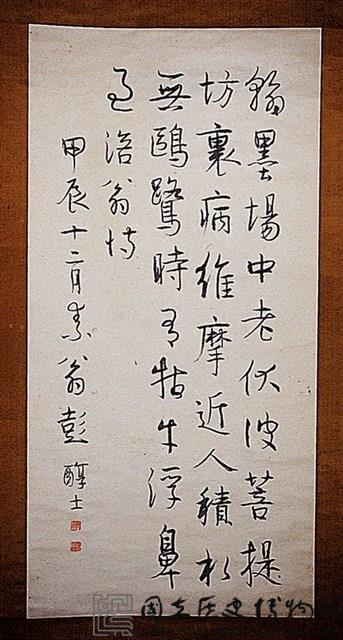 翰墨場中老伏波菩提
坊裏病維摩近人積水
無鷗鷺時有牯牛浮鼻
過 涪翁詩
甲辰十二月素翁彭醇士
國立歷史博物